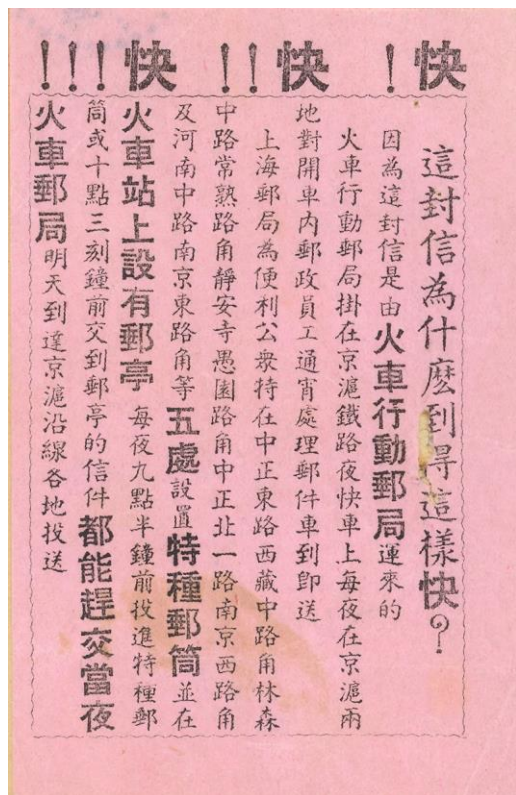 快！ 快！！ 快！！！
這封信為什麽到得這樣快？
因為這封信是由火車行動郵局運來的
火車行動郵局掛在京滬鐵路夜快車上每夜在京滬兩
地對開車內郵政員工通宵處理郵件車到卽送
上海郵局為便利公衆特在中正東路西藏中路角林森
中路常熟路角靜安寺愚園路角中正北一路南京西路角
及河南中路南京東路角等五處設置特種郵筒並在
火車站上設有郵亭每夜九點半鐘前投進特種郵
筒或十點三刻鐘前交到郵亭的信件都能趕交當夜
火車郵局明天到達京滬沿線各地投送